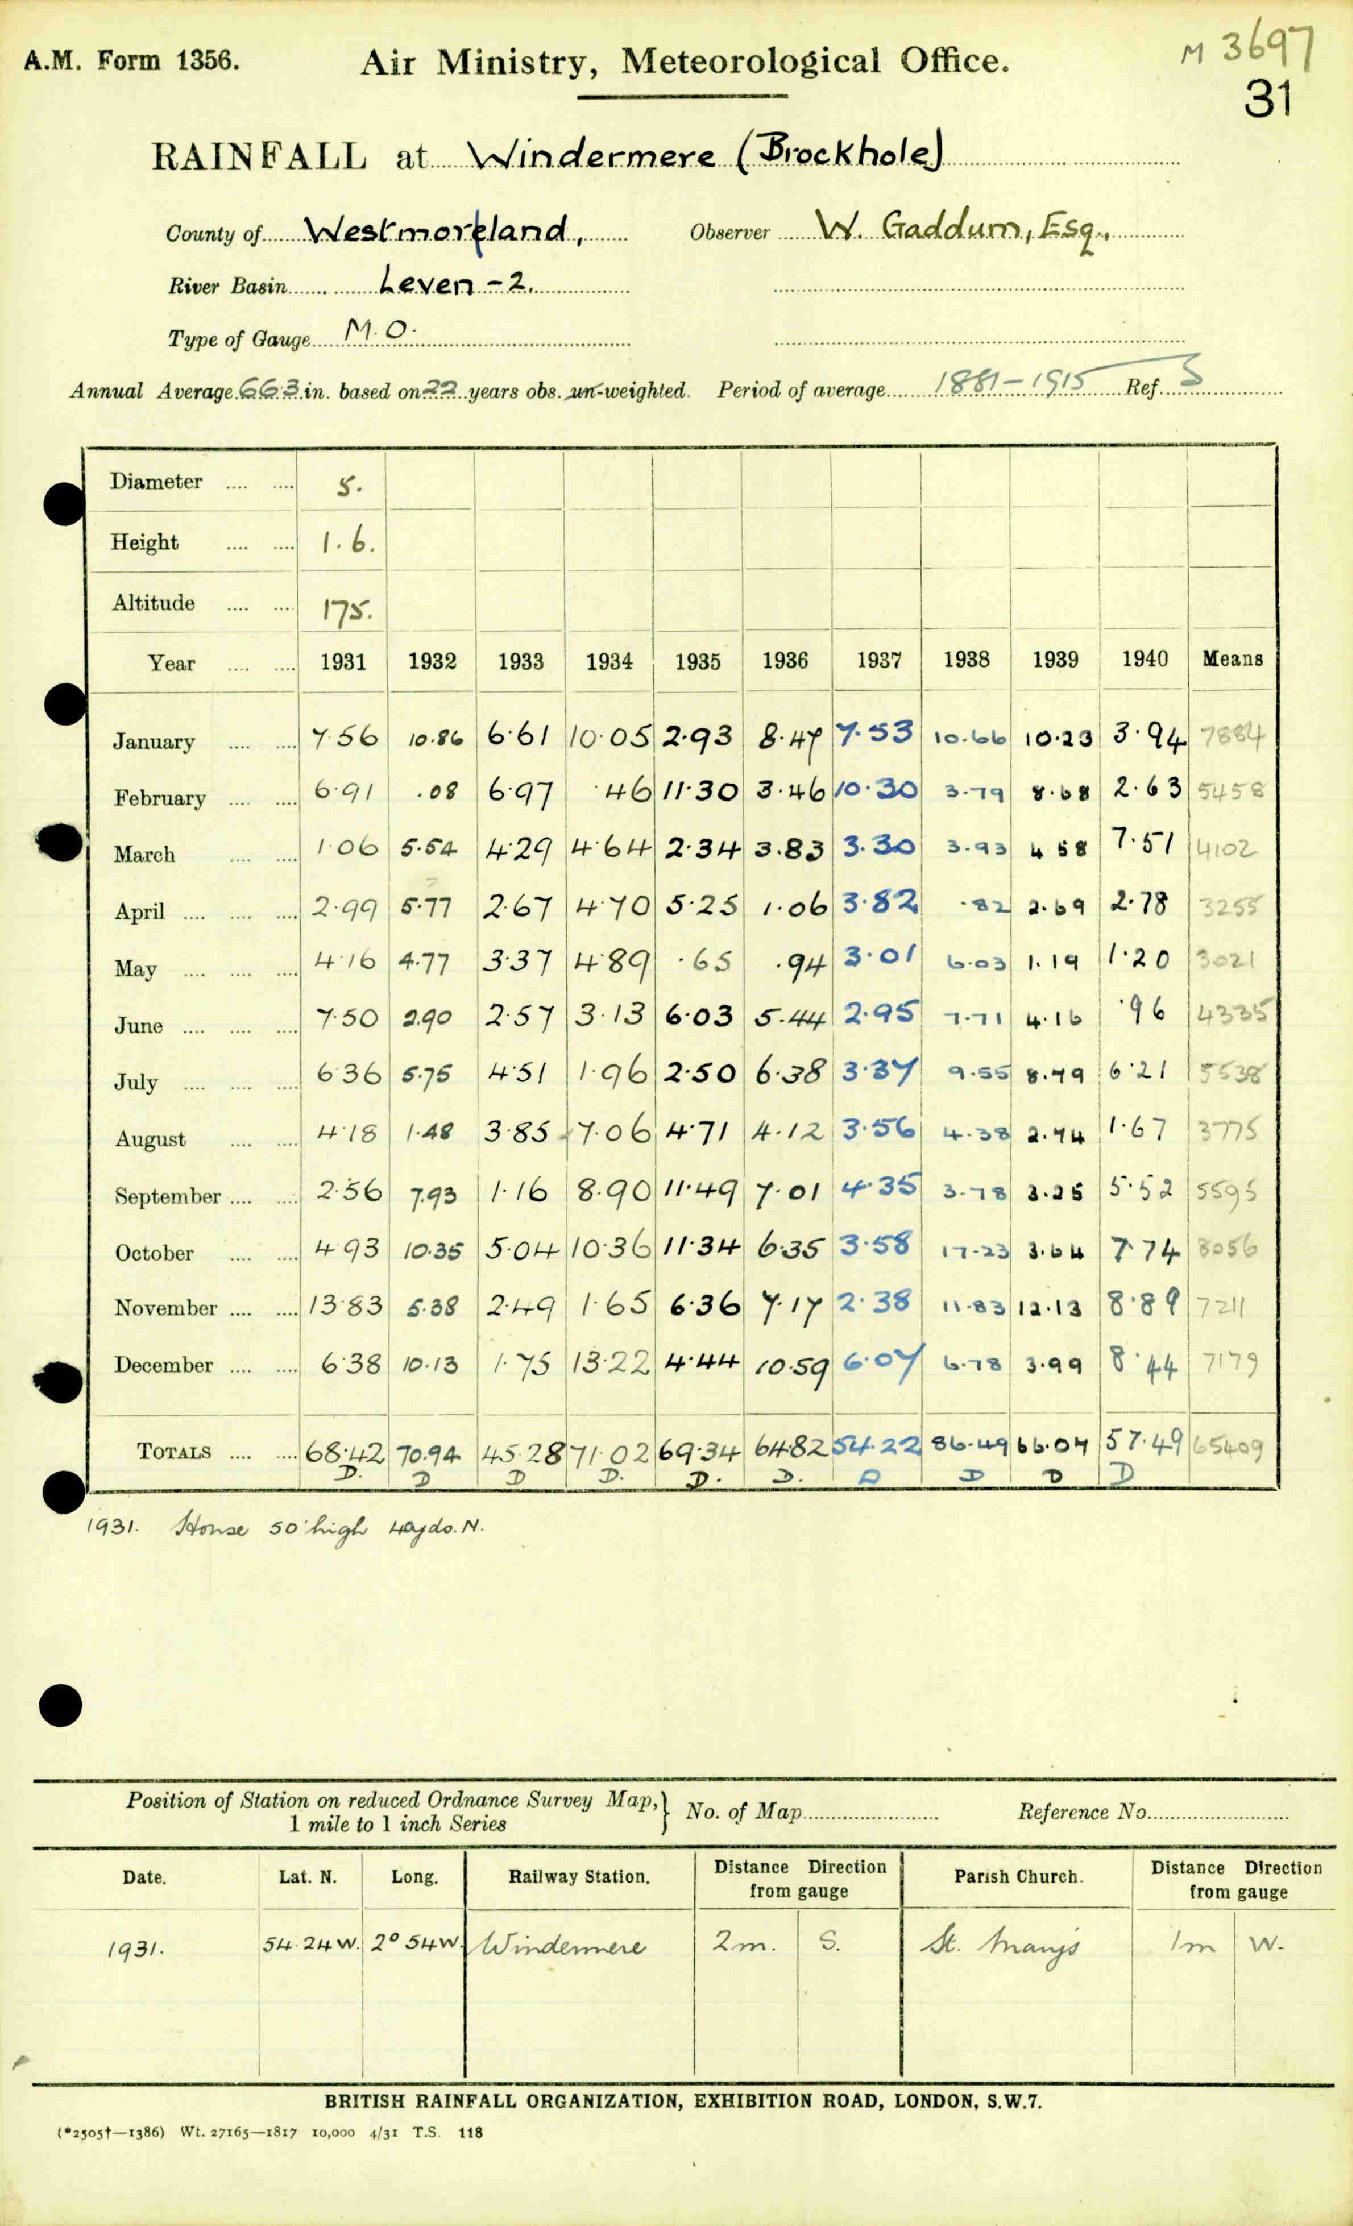 A.M. Form 1356.
Air Ministry, Meteorological Office.
M 3697
31
RAINFALL at Windermere (Brockhole)
County of Westmorland, Observer W. Gaddum, Esq.,
River Basin Leven - 2.
Type of Gauge M.O.
Annual Average 66.3 in. based on 22 years obs. un-weighted. Period of average 1881-1915 Ref. S
Diameter .... .... 5.
Height .... .... 1.6.
Altitude .... .... 175.
Year .... .... 1931 1932 1933 1934 1935 1936 1937 1938 1939 1940 Means
January .... .... 7.56 10.86 6.61 10.05 2.93 8.47 7.53 10.66 10.23 3.94 7884
February .... .... 6.91 .08 6.97 .46 11.30 3.46 10.30 3.79 8.68 2.63 5458
March .... .... 1.06 5.54 4.29 4.64 2.34 3.83 3.30 3.93 4.58 7.51 4102
April .... .... .... 2.99 5.77 2.67 4.70 5.25 1.06 3.82 .82 2.69 2.78 3255
May .... .... .... 4.16 4.77 3.37 4.89 .65 .94 3.01 6.03 1.19 1.20 3021
June .... .... .... 7.50 2.90 2.57 3.13 6.03 5.44 2.95 7.71 4.16 .96 4335
July .... .... .... 6.36 5.75 4.51 1.96 2.50 6.38 3.37 9.55 8.79 6.21 5538
August .... .... 4.18 1.48 3.85 7.06 4.71 4.12 3.56 4.38 2.74 1.67 3775
September .... .... 2.56 7.93 1.16 8.90 11.49 7.01 4.35 3.78 3.25 5.52 5595
October .... .... 4.93 10.35 5.04 10.36 11.34 6.35 3.58 17.23 3.64 7.74 8056
November .... .... 13.83 5.38 2.49 1.65 6.36 7.17 2.38 11.83 12.13 8.89 7211
December .... .... 6.38 10.13 1.75 13.22 4.44 10.59 6.07 6.78 3.99 8.44 7179
TOTALS .... .... 68.42 70.94 45.28 71.02 69.34 64.82 54.22 86.49 66.07 57.49 65409
D. D D D. D. D. D D D D
1931. House 50' high 40yds. N.
Position of Station on reduced Ordnance Survey Map, } No. of Map Reference No.
1 mile to 1 inch Series
Date. Lat. N. Long. Railway Station. Distance Direction from gauge Parish Church. Distance Direction from gauge
1931. 54 24 W. 2° 54 W. Windermere 2 m. S. St. Mary's 1m W.
BRITISH RAINFALL ORGANIZATION, EXHIBITION ROAD, LONDON, S.W.7.
(*2505†—1386) Wt. 27165—1817 10,000 4/31 T.S. 118